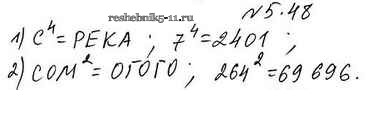 reshebnik5-11.ru
№5.48
1) С⁴=РЕКА ; 7⁴=2401 ;
2) СОМ²=ОГОГО ; 264²=69 696.